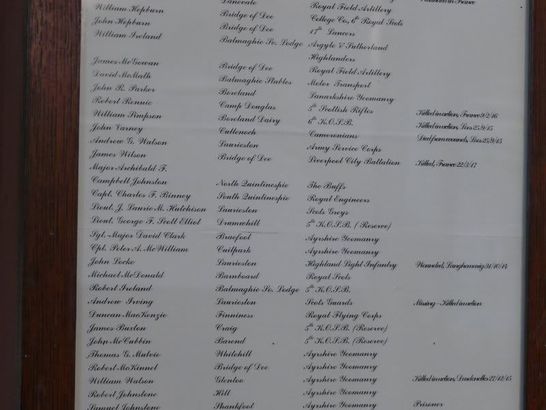 Danevale Royal Field Artillery
William Hepburn Bridge of Dee College Co., 6th Royal Scots
John Hepburn Bridge of Dee 17th Lancers
William Ireland Balmaghie So. Lodge Argyle & Sutherland
Highlanders
James McGowan Bridge of Dee Royal Field Artillery
David McMath Balmaghie Stables Motor Transport
John R. Parker Boreland Lanarkshire Yeomanry
Robert Rennie Camp Douglas 5th Scottish Rifles
William Simpson Boreland Dairy 6th K.O.S.B. Killed in action, France 9/2/16
John Varney Cullenoch Cameronians Killed in action, Loos 25/9/15
Andrew G. Watson Laurieston Army Service Corps Died from wounds, Loos 25/9/15
James Wilson Bridge of Dee Liverpool City Battalion Killed, France 22/3/17
Major Archibald F.
Campbell Johnston North Quintinespie The Buffs
Capt. Charles F. Binney South Quintinespie Royal Engineers
Lieut. J. Laurie M. Hutchison Laurieston Scots Greys
Lieut. George F. Scott Elliot Drumwhill 5th K.O.S.B. (Reserve)
Sgt.-Major David Clark Braefoot Ayrshire Yeomanry
Cpl. Peter A. McWilliam Cuilpark Ayrshire Yeomanry
John Locke Laurieston Highland Light Infantry Wounded, 31/10/14
Michael McDonald Barnboard Royal Scots
Robert Ireland Balmaghie So. Lodge 5th K.O.S.B.
Andrew Irving Laurieston Scots Guards Missing - Killed in action
Duncan MacKenzie Finniness Royal Flying Corps
James Buxton Craig 5th K.O.S.B. (Reserve)
John McCubbin Barend 5th K.O.S.B. (Reserve)
Thomas G. Mutvie Whitehill Ayrshire Yeomanry
Robert McKinnel Bridge of Dee Ayrshire Yeomanry
William Watson Glenlee Ayrshire Yeomanry Killed in action, Dardanelles 27/12/15
Robert Johnstone Hill Ayrshire Yeomanry
Samuel Johnstone Shankfoot Ayrshire Yeomanry Prisoner